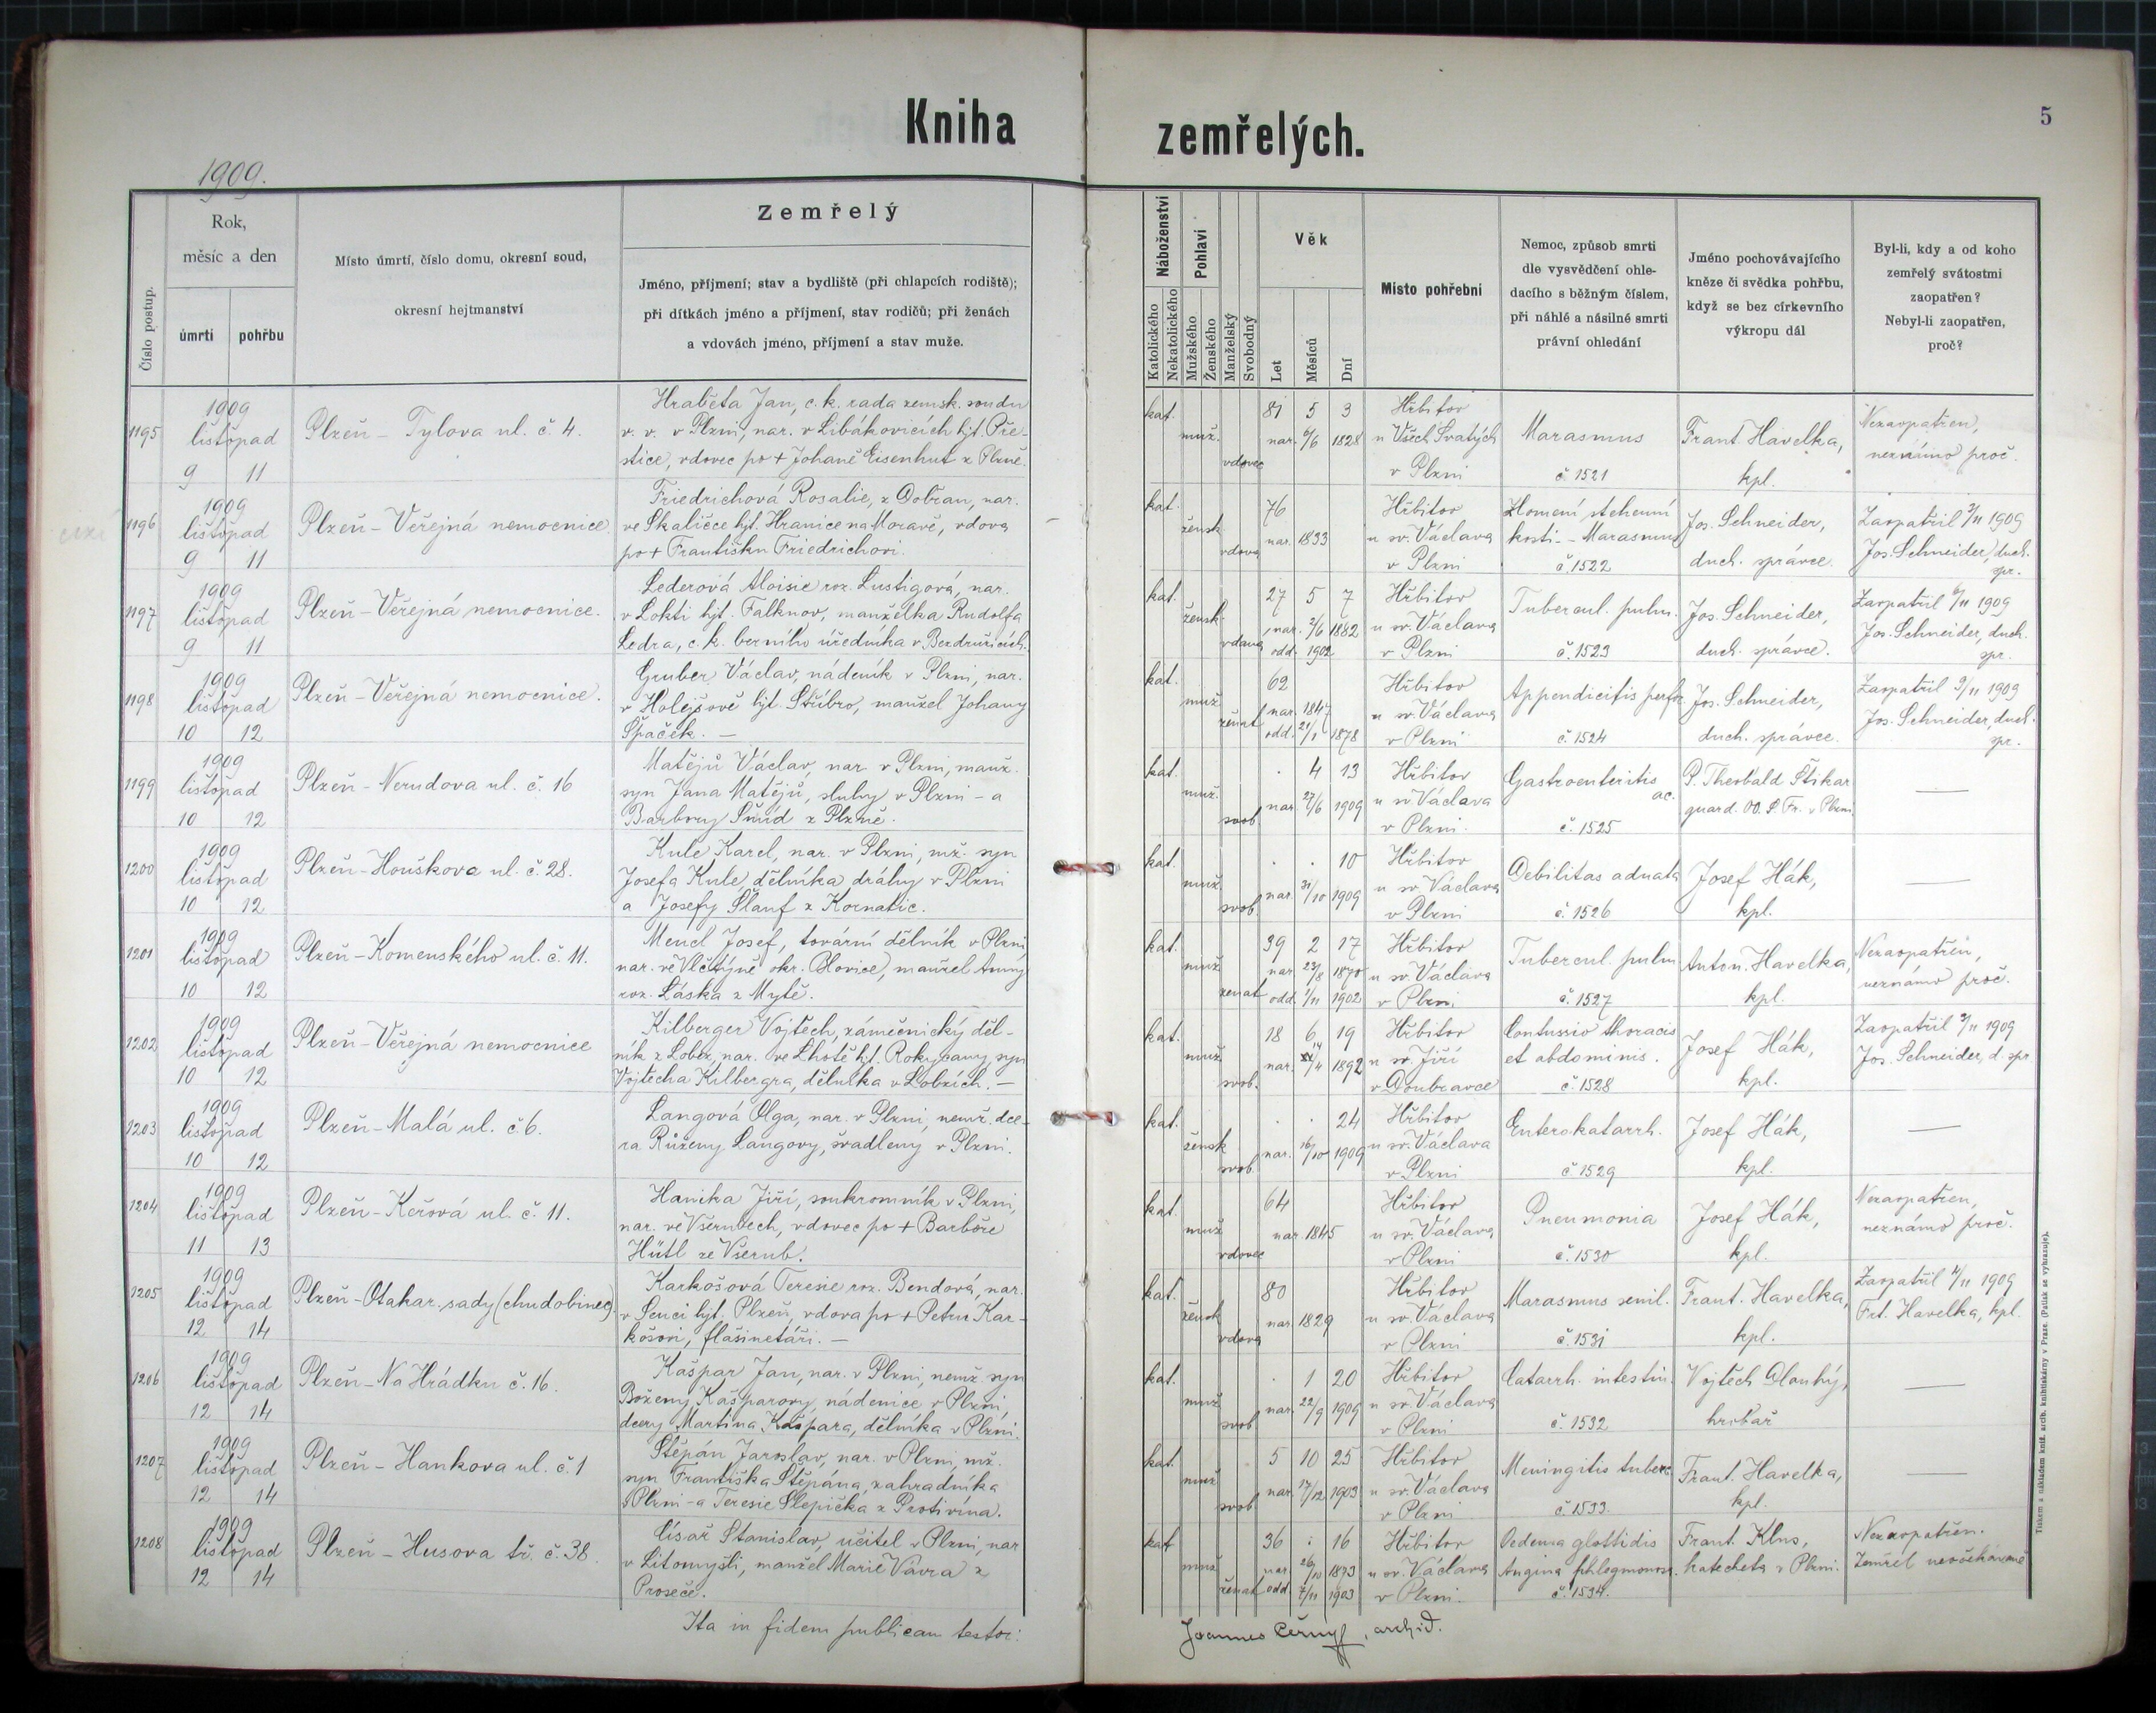 Kniha zemřelých.
5
1909.
Číslo postup.
Rok,
měsíc a den
úmrtí
pohřbu
Místo úmrtí, číslo domu, okresní soud,
okresní hejtmanství
Zemřelý
Jméno, příjmení; stav a bydliště (při chlapcích rodiště);
při dítkách jméno a příjmení, stav rodičů; při ženách
a vdovách jméno, příjmení a stav muže.
Náboženství
Katolického
Nekatolického
Pohlaví
Mužského
Ženského
Manželský
Svobodný
Věk
Let
Měsíců
Dní
Místo pohřební
Nemoc, způsob smrti
dle vysvědčení ohle-
dacího s běžným číslem,
při náhlé a násilné smrti
právní ohledání
Jméno pochovávajícího
kněze či svědka pohřbu,
když se bez církevního
výkropu dál
Byl-li, kdy a od koho
zemřelý svátostmi
zaopatřen?
Nebyl-li zaopatřen,
proč?
1195
1909
listopad
9 11
Plzeň - Tylova ul. č. 4.
Hraběta Jan, c. k. rada zemsk. soudu
v. v. v Plzni, nar. v Libákovicích hjt. Pře-
stice, vdovec po + Johaně Eisenhut z Plzně.
kat.
muž.
vdovec
81 5 3
nar. 6/6 1828
Hřbitov
u Všech Svatých
v Plzni
Marasmus
č. 1521
Frant. Havelka,
kpl.
Nezaopatřen,
neznámo proč.
cizí
1196
1909
listopad
9 11
Plzeň - Veřejná nemocnice
Friedrichová Rosalie, z Dobřan, nar.
ve Skaličce hjt. Hranice na Moravě, vdova
po + Františku Friedrichovi.
kat.
žensk
vdova
76
nar. 1833
Hřbitov
u sv. Václava
v Plzni
Zlomení stehenní
kosti. - Marasmus
č. 1522
Jos. Schneider,
duch. správce.
Zaopatřil 3/11 1909
Jos. Schneider, duch.
spr.
1197
1909
listopad
9 11
Plzeň - Veřejná nemocnice.
Lederová Aloisie roz. Lustigová, nar.
v Lokti hjt. Falknov, manželka Rudolfa
Ledra, c. k. berního úředníka v Bezdružicích.
kat.
žensk.
vdaná
27 5 7
nar. 2/6 1882
odd. 1902
Hřbitov
u sv. Václava
v Plzni
Tubercul. pulm.
č. 1523
Jos. Schneider,
duch. správce.
Zaopatřil 6/11 1909
Jos. Schneider, duch.
spr.
1198
1909
listopad
10 12
Plzeň - Veřejná nemocnice.
Gruber Václav, nádeník v Plzni, nar.
v Holejšově hjt. Stříbro, manžel Johany
Špaček. -
kat.
muž
ženat
62
nar. 1847
odd. 21/1 1878
Hřbitov
u sv. Václava
v Plzni
Appendicitis perfor.
č. 1524
Jos. Schneider,
duch. správce.
Zaopatřil 9/11 1909
Jos. Schneider, duch.
spr.
1199
1909
listopad
10 12
Plzeň - Nerudova ul. č. 16
Matějů Václav, nar. v Plzni, manž.
syn Jana Matějů, sluhy v Plzni - a
Barbory Šmíd z Plzně.
kat.
muž.
svob.
. 4 13
nar. 27/6 1909
Hřbitov
u sv. Václava
v Plzni.
Gastroenteritis
ac.
č. 1525
P. Theobald Štikar
guard. OO. P. Fr. v Plzni
—
1200
1909
listopad
10 12
Plzeň - Houškova ul. č. 28.
Kule Karel, nar. v Plzni, mž. syn
Josefa Kule, dělníka dráhy v Plzni
a Josefy Šlauf z Kornatic.
kat.
muž.
svob.
. . 10
nar. 31/10 1909
Hřbitov
u sv. Václava
v Plzni
Debilitas adnata
č. 1526
Josef Hák,
kpl.
—
1201
1909
listopad
10 12
Plzeň - Komenského ul. č. 11.
Mencl Josef, tovární dělník v Plzni,
nar. ve Vlčtýně okr. Blovice, manžel Anny
roz. Láska z Mýtě.
kat.
muž
ženat
39 2 17
nar. 23/8 1870
odd. 1/11 1902
Hřbitov
u sv. Václava
v Plzni
Tubercul. pulm
č. 1527
Anton. Havelka,
kpl.
Nezaopatřen,
neznámo proč.
1202
1909
listopad
10 12
Plzeň - Veřejná nemocnice
Kilberger Vojtěch, zámečnický děl-
ník z Lobez, nar. ve Lhotě hjt. Rokycany, syn
Vojtěcha Kilbergra, dělníka v Lobzích. -
kat.
muž.
svob.
18 6 19
nar. 14/4 1892
Hřbitov
u sv. Jiří
v Doubravce
Contussio thoracis
et abdominis.
č. 1528
Josef Hák,
kpl.
Zaopatřil 9/11 1909
Jos. Schneider, d. spr
1203
1909
listopad
10 12
Plzeň - Malá ul. č 6.
Langová Olga, nar. v Plzni, nemž. dce-
ra Růženy Langovy, švadleny v Plzni.
kat.
žensk
svob.
. . 24
nar. 16/10 1909
Hřbitov
u sv. Václava
v Plzni
Enterokatarrh.
č 1529
Josef Hák,
kpl.
—
1204
1909
listopad
11 13
Plzeň - Keřová ul. č. 11.
Hanika Jiří, soukromník v Plzni,
nar. ve Všerubech, vdovec po + Barboře
Hütl ze Všerub.
kat.
muž.
vdovec
64
nar. 1845
Hřbitov
u sv. Václava
v Plzni
Pneumonia
č. 1530
Josef Hák,
kpl.
Nezaopatřen,
neznámo proč.
1205
1909
listopad
12 14
Plzeň - Otakar. sady (chudobinec)
Karkošová Teresie roz. Bendová, nar.
v Senci hjt. Plzeň, vdova po + Petru Kar-
košovi, flašinetáři. -
kat.
žensk
vdova
80
nar. 1829
Hřbitov
u sv. Václava
v Plzni
Marasmus senil.
č. 1531
Frant. Havelka,
kpl.
Zaopatřil 11/11 1909
Frt. Havelka, kpl.
1206
1909
listopad
12 14
Plzeň - Na Hrádku č. 16.
Kašpar Jan, nar. v Plzni, nemž. syn
Boženy Kašparovy, nádenice v Plzni,
dcery Martina Kašpara, dělníka v Plzni.
kat.
muž
svob.
. 1 20
nar. 22/9 1909
Hřbitov
u sv. Václava
v Plzni
Catarrh. intestin.
č. 1532
Vojtěch Dlouhý,
hrobař
—
1207
1909
listopad
12 14
Plzeň - Hankova ul. č. 1
Štěpán Jaroslav, nar. v Plzni, mž.
syn Františka Štěpána, zahradníka
v Plzni - a Teresie Slepička z Protivína.
kat.
muž.
svob
5 10 25
nar. 17/12 1903
Hřbitov
u sv. Václava
v Plzni
Meningitis tuberc.
č. 1533.
Frant. Havelka,
kpl.
—
1208
1909
listopad
12 14
Plzeň - Husova tř. č. 38.
Císař Stanislav, učitel v Plzni, nar
v Litomyšli, manžel Marie Vávra z
Proseče.
kat
muž
ženat
36 . 16
nar. 26/10 1873
odd. 7/11 1903
Hřbitov
u sv. Václava
v Plzni.
Oedema glottidis
Angina phlegmonosa.
č. 1534.
Frant. Klus,
katecheta v Plzni.
Nezaopatřen.
Zemřel neočekávaně
Ita in fidem publicam testor:
Joannes Černý, archid.
Tiskem a nákladem kníž. arcib. knihtiskárny v Praze. (Patisk se vyhrazuje).